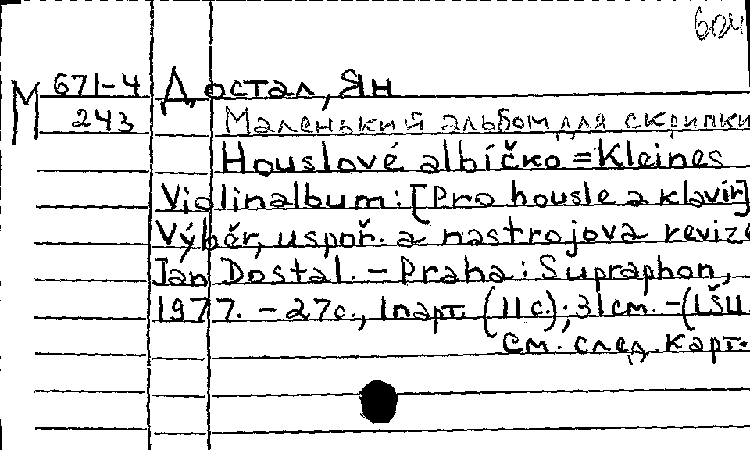 604
М 671-4 Достал, Ян
243 Маленький альбом для скрипки
Houslové albíčko = Kleines
Violinalbum: [Pro housle a klavír]
Výběr, uspoř. a nastrojova revize
Jan Dostal. - Praha: Supraphon,
1977. - 27с., 1 парт. (11с.); 31см. - (LŠU.
См. след. карт.